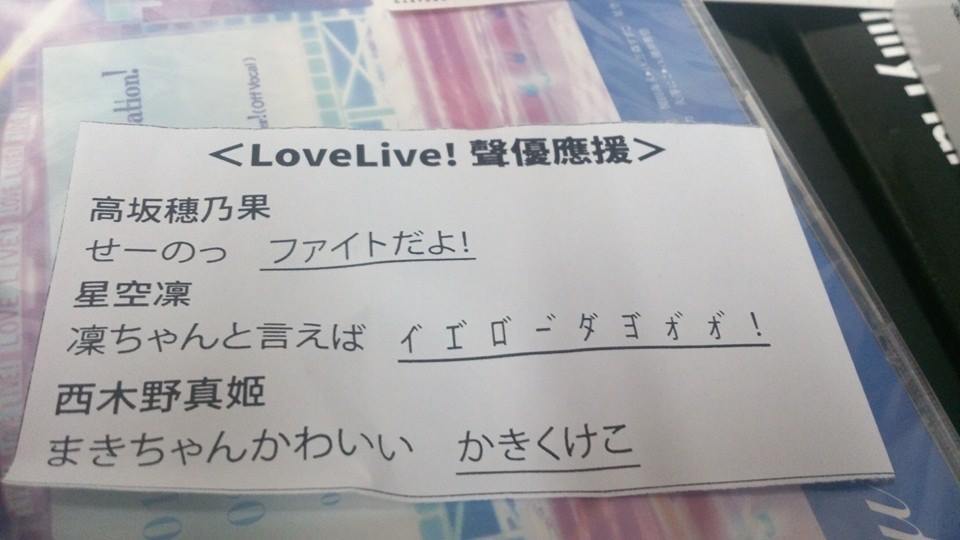 <LoveLive! 聲優應援>
高坂穂乃果
せーのっ ファイトだよ!
星空凛
凛ちゃんと言えば イ゙エ゙ロ゙ーダヨ゙オ゙オ゙!
西木野真姫
まきちゃんかわいい かきくけこ
ation!
(Off Vocal)
μ